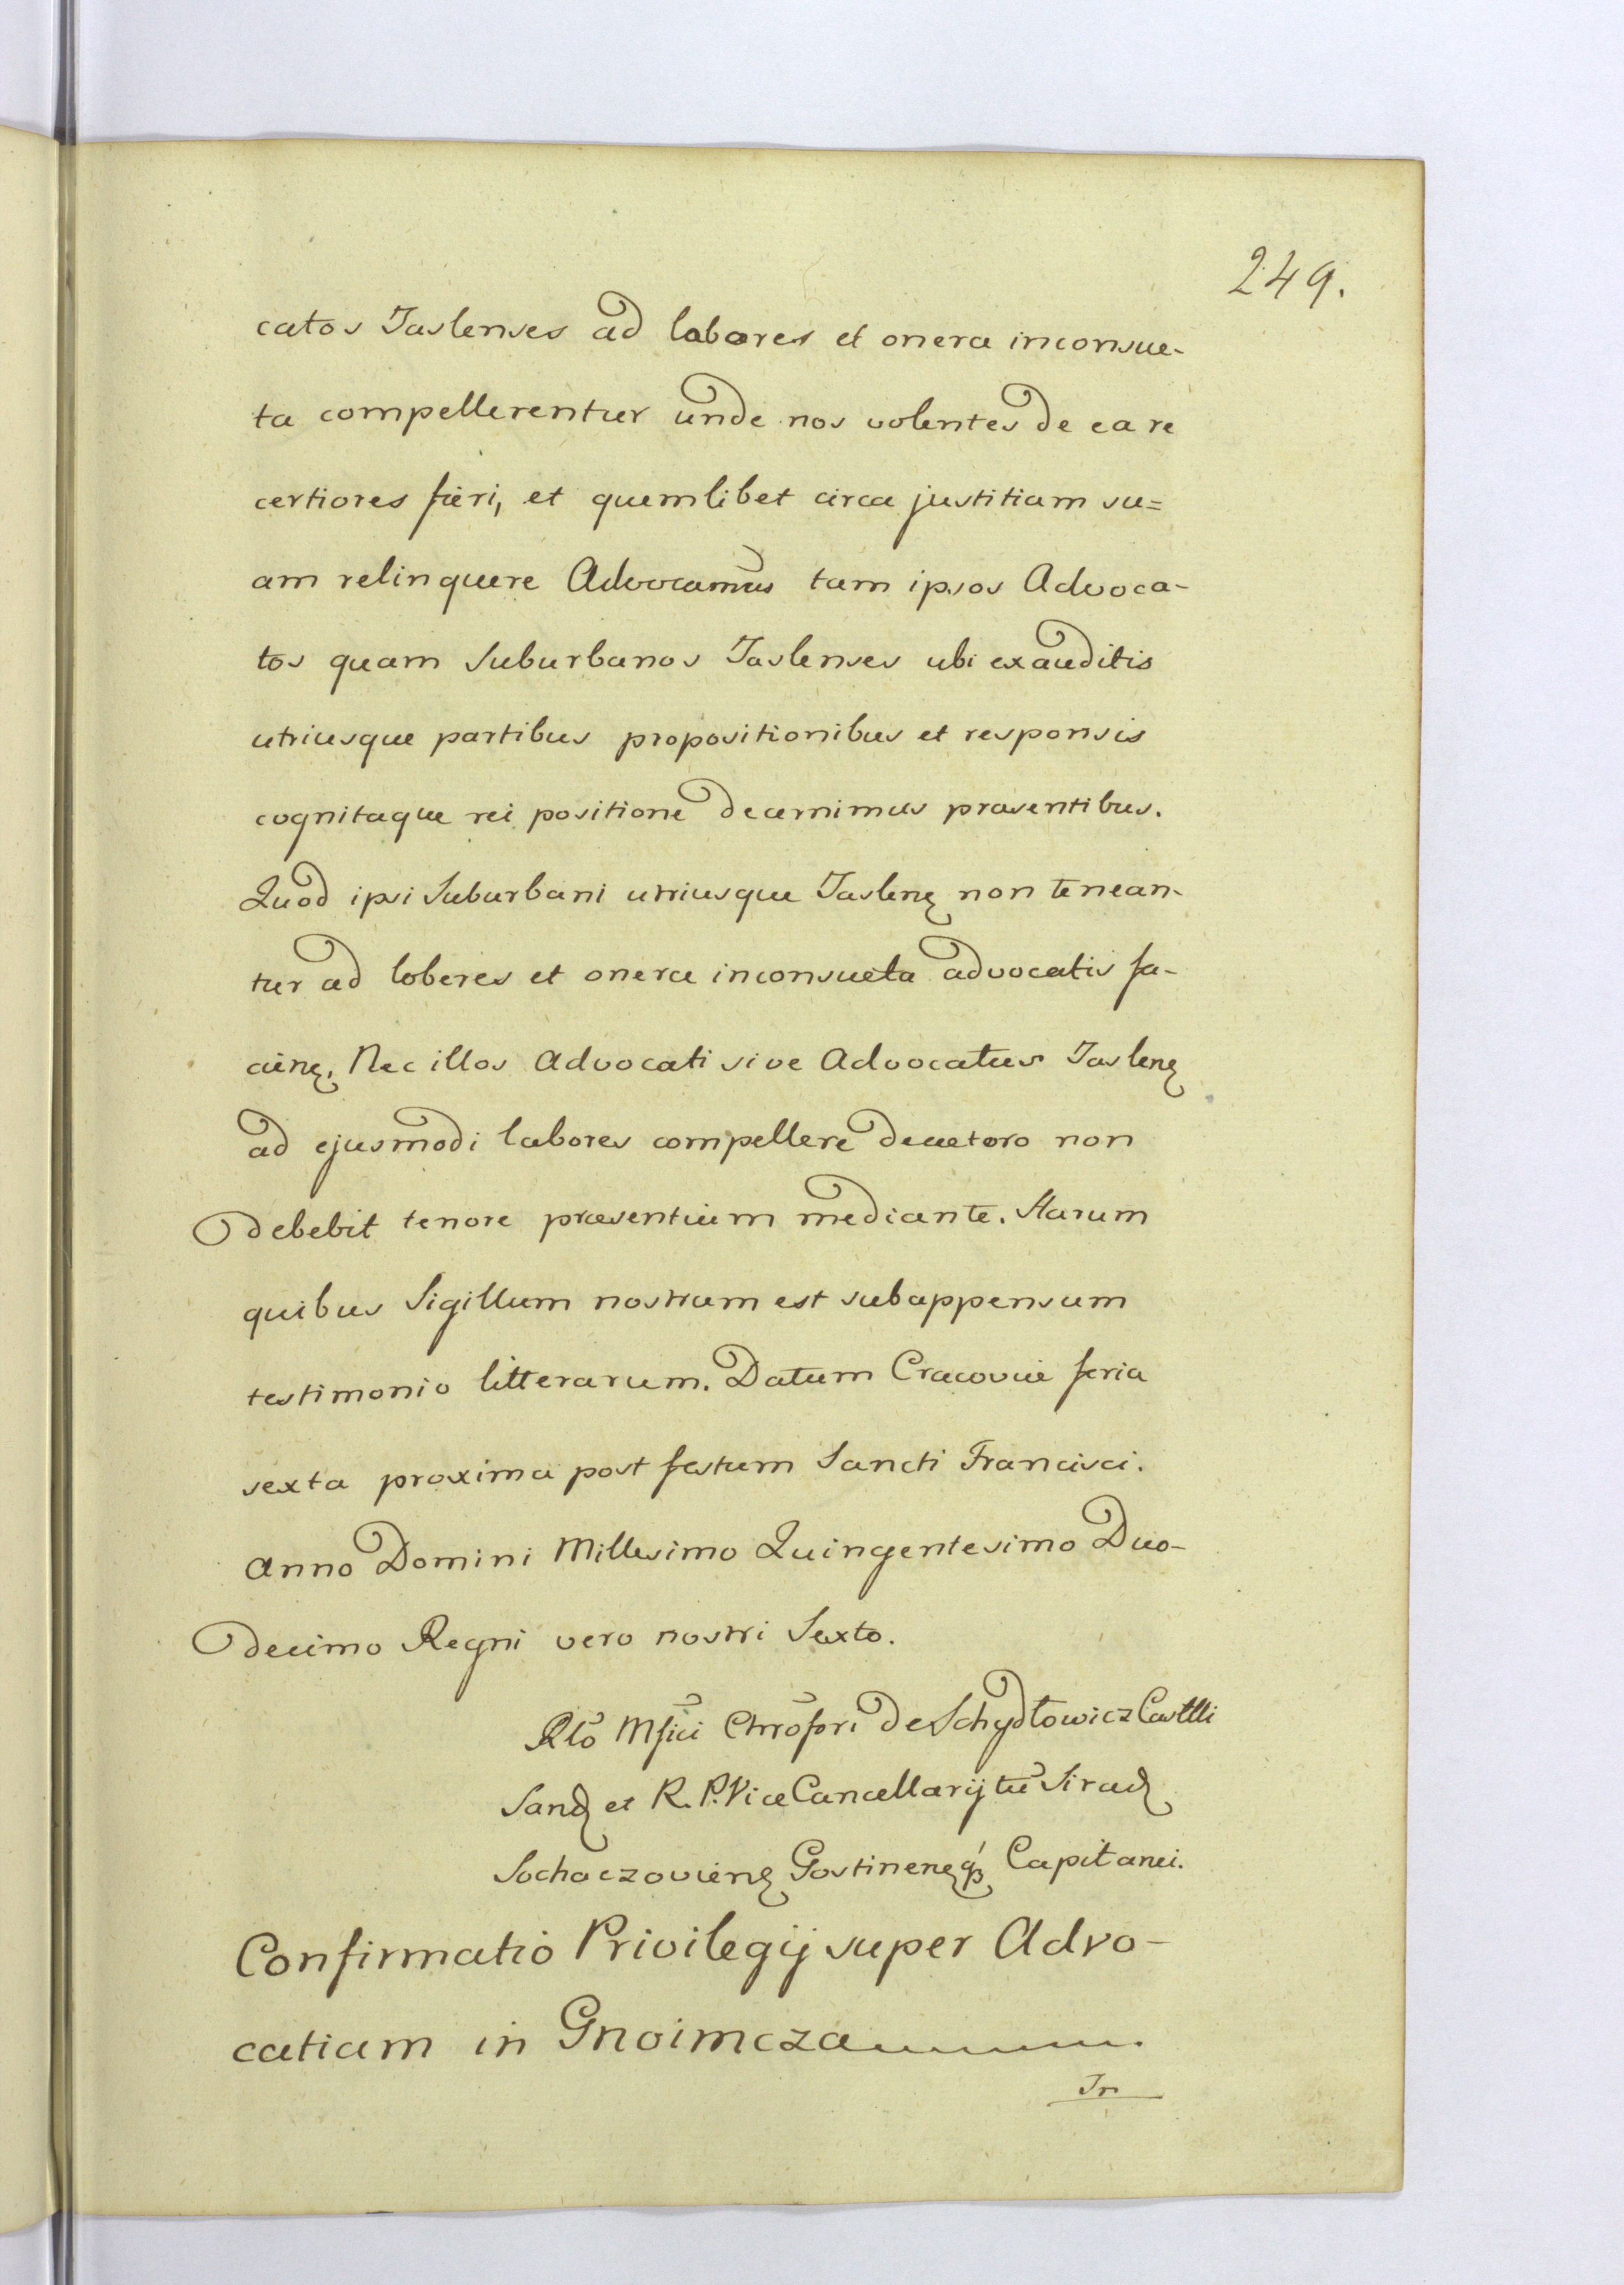 249.
catos Jaslenses ad labores et onera inconsue-
ta compellerentur unde nos volentes de ea re
certiores fieri, et quemlibet circa justitiam su=
am relinquere Advocamus tam ipsos Advoca-
tos quam Suburbanos Jaslenses ubi exauditis
utriusque partibus propositionibus et responsis
cognitaque rei positione decernimus praesentibus.
Quod ipsi Suburbani utriusque Jasleneʒ non tenean-
tur ad loberes et onera inconsueta advocatis fa-
cieneʒ, Nec illos Advocati sive Advocatus Jasleneʒ
ad ejusmodi labores compellere decetero non
debebit tenore praesentium mediante. Harum
quibus Sigillum nostrum est subappensum
testimonio litterarum. Datum Cracoviae feria
sexta proxima post festum Sancti Francisci.
Anno Domini Millesimo Quingentesimo Duo-
decimo Regni vero nostri Sexto.
Rlo Mfici Chrofori de Schydłowicz Castlli
Sandʒ et R. P. Vice Cancellarij tu Siradʒ
Sochaczovieneʒ Gostineneʒqʒ Capitanei.
Confirmatio Privilegij super Advo-
catiam in Gnoimcza
In